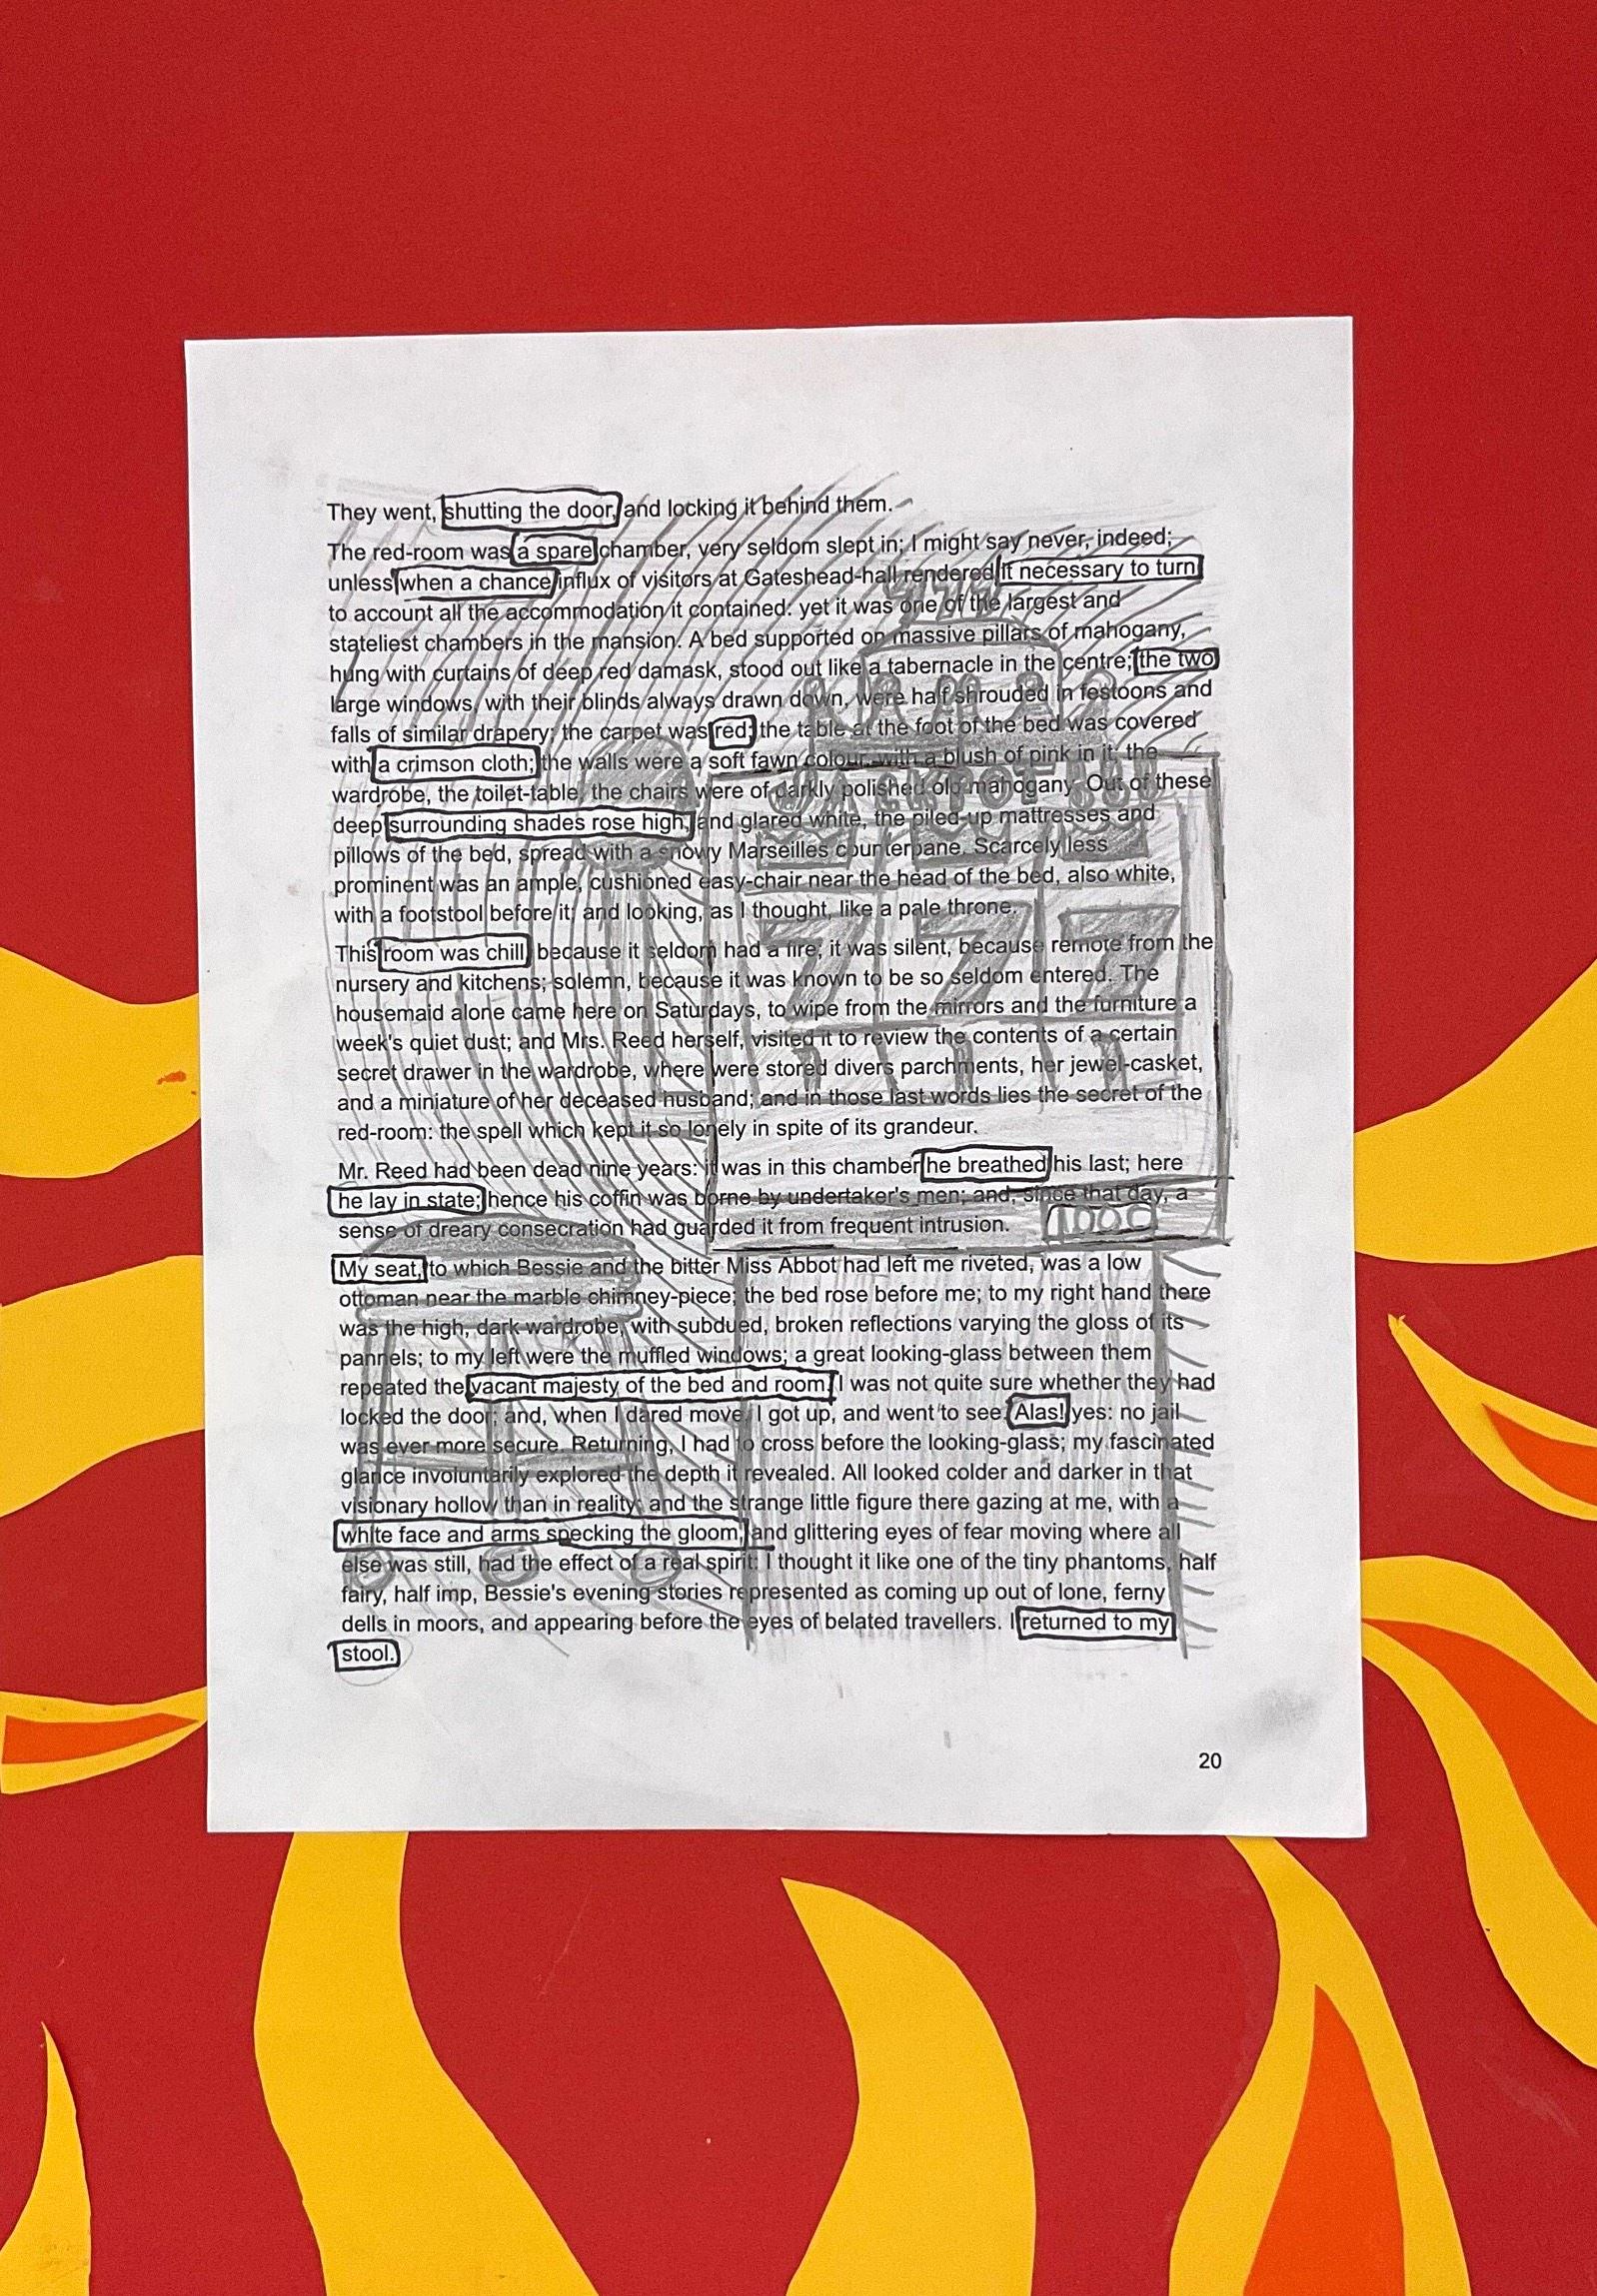 They went, shutting the door, and locking it behind them.
The red-room was a spare chamber, very seldom slept in; I might say never, indeed;
unless when a chance influx of visitors at Gateshead-hall rendered it necessary to turn
to account all the accommodation it contained: yet it was one of the largest and
stateliest chambers in the mansion. A bed supported on massive pillars of mahogany,
hung with curtains of deep red damask, stood out like a tabernacle in the centre; the two
large windows, with their blinds always drawn down, were half shrouded in festoons and
falls of similar drapery; the carpet was red; the table at the foot of the bed was covered
with a crimson cloth; the walls were a soft fawn colour, with a blush of pink in it; the
wardrobe, the toilet-table, the chairs were of darkly polished old mahogany. Out of these
deep surrounding shades rose high, and glared white, the piled-up mattresses and
pillows of the bed, spread with a snowy Marseilles counterpane. Scarcely less
prominent was an ample, cushioned easy-chair near the head of the bed, also white,
with a footstool before it; and looking, as I thought, like a pale throne.
This room was chill, because it seldom had a fire; it was silent, because remote from the
nursery and kitchens; solemn, because it was known to be so seldom entered. The
housemaid alone came here on Saturdays, to wipe from the mirrors and the furniture a
week's quiet dust; and Mrs. Reed herself, visited it to review the contents of a certain
secret drawer in the wardrobe, where were stored divers parchments, her jewel-casket,
and a miniature of her deceased husband; and in those last words lies the secret of the
red-room: the spell which kept it so lonely in spite of its grandeur.
Mr. Reed had been dead nine years: it was in this chamber he breathed his last; here
he lay in state; hence his coffin was borne by undertaker's men; and, since that day, a
sense of dreary consecration had guarded it from frequent intrusion.
My seat, to which Bessie and the bitter Miss Abbot had left me riveted, was a low
ottoman near the marble chimney-piece; the bed rose before me; to my right hand there
was the high, dark wardrobe, with subdued, broken reflections varying the gloss of its
pannels; to my left were the muffled windows; a great looking-glass between them
repeated the vacant majesty of the bed and room. I was not quite sure whether they had
locked the door; and, when I dared move, I got up, and went to see. Alas! yes: no jail
was ever more secure. Returning, I had to cross before the looking-glass; my fascinated
glance involuntarily explored the depth it revealed. All looked colder and darker in that
visionary hollow than in reality: and the strange little figure there gazing at me, with a
white face and arms specking the gloom, and glittering eyes of fear moving where all
else was still, had the effect of a real spirit: I thought it like one of the tiny phantoms, half
fairy, half imp, Bessie's evening stories represented as coming up out of lone, ferny
dells in moors, and appearing before the eyes of belated travellers. I returned to my
stool.
777
JACKPOT
777
1000
20